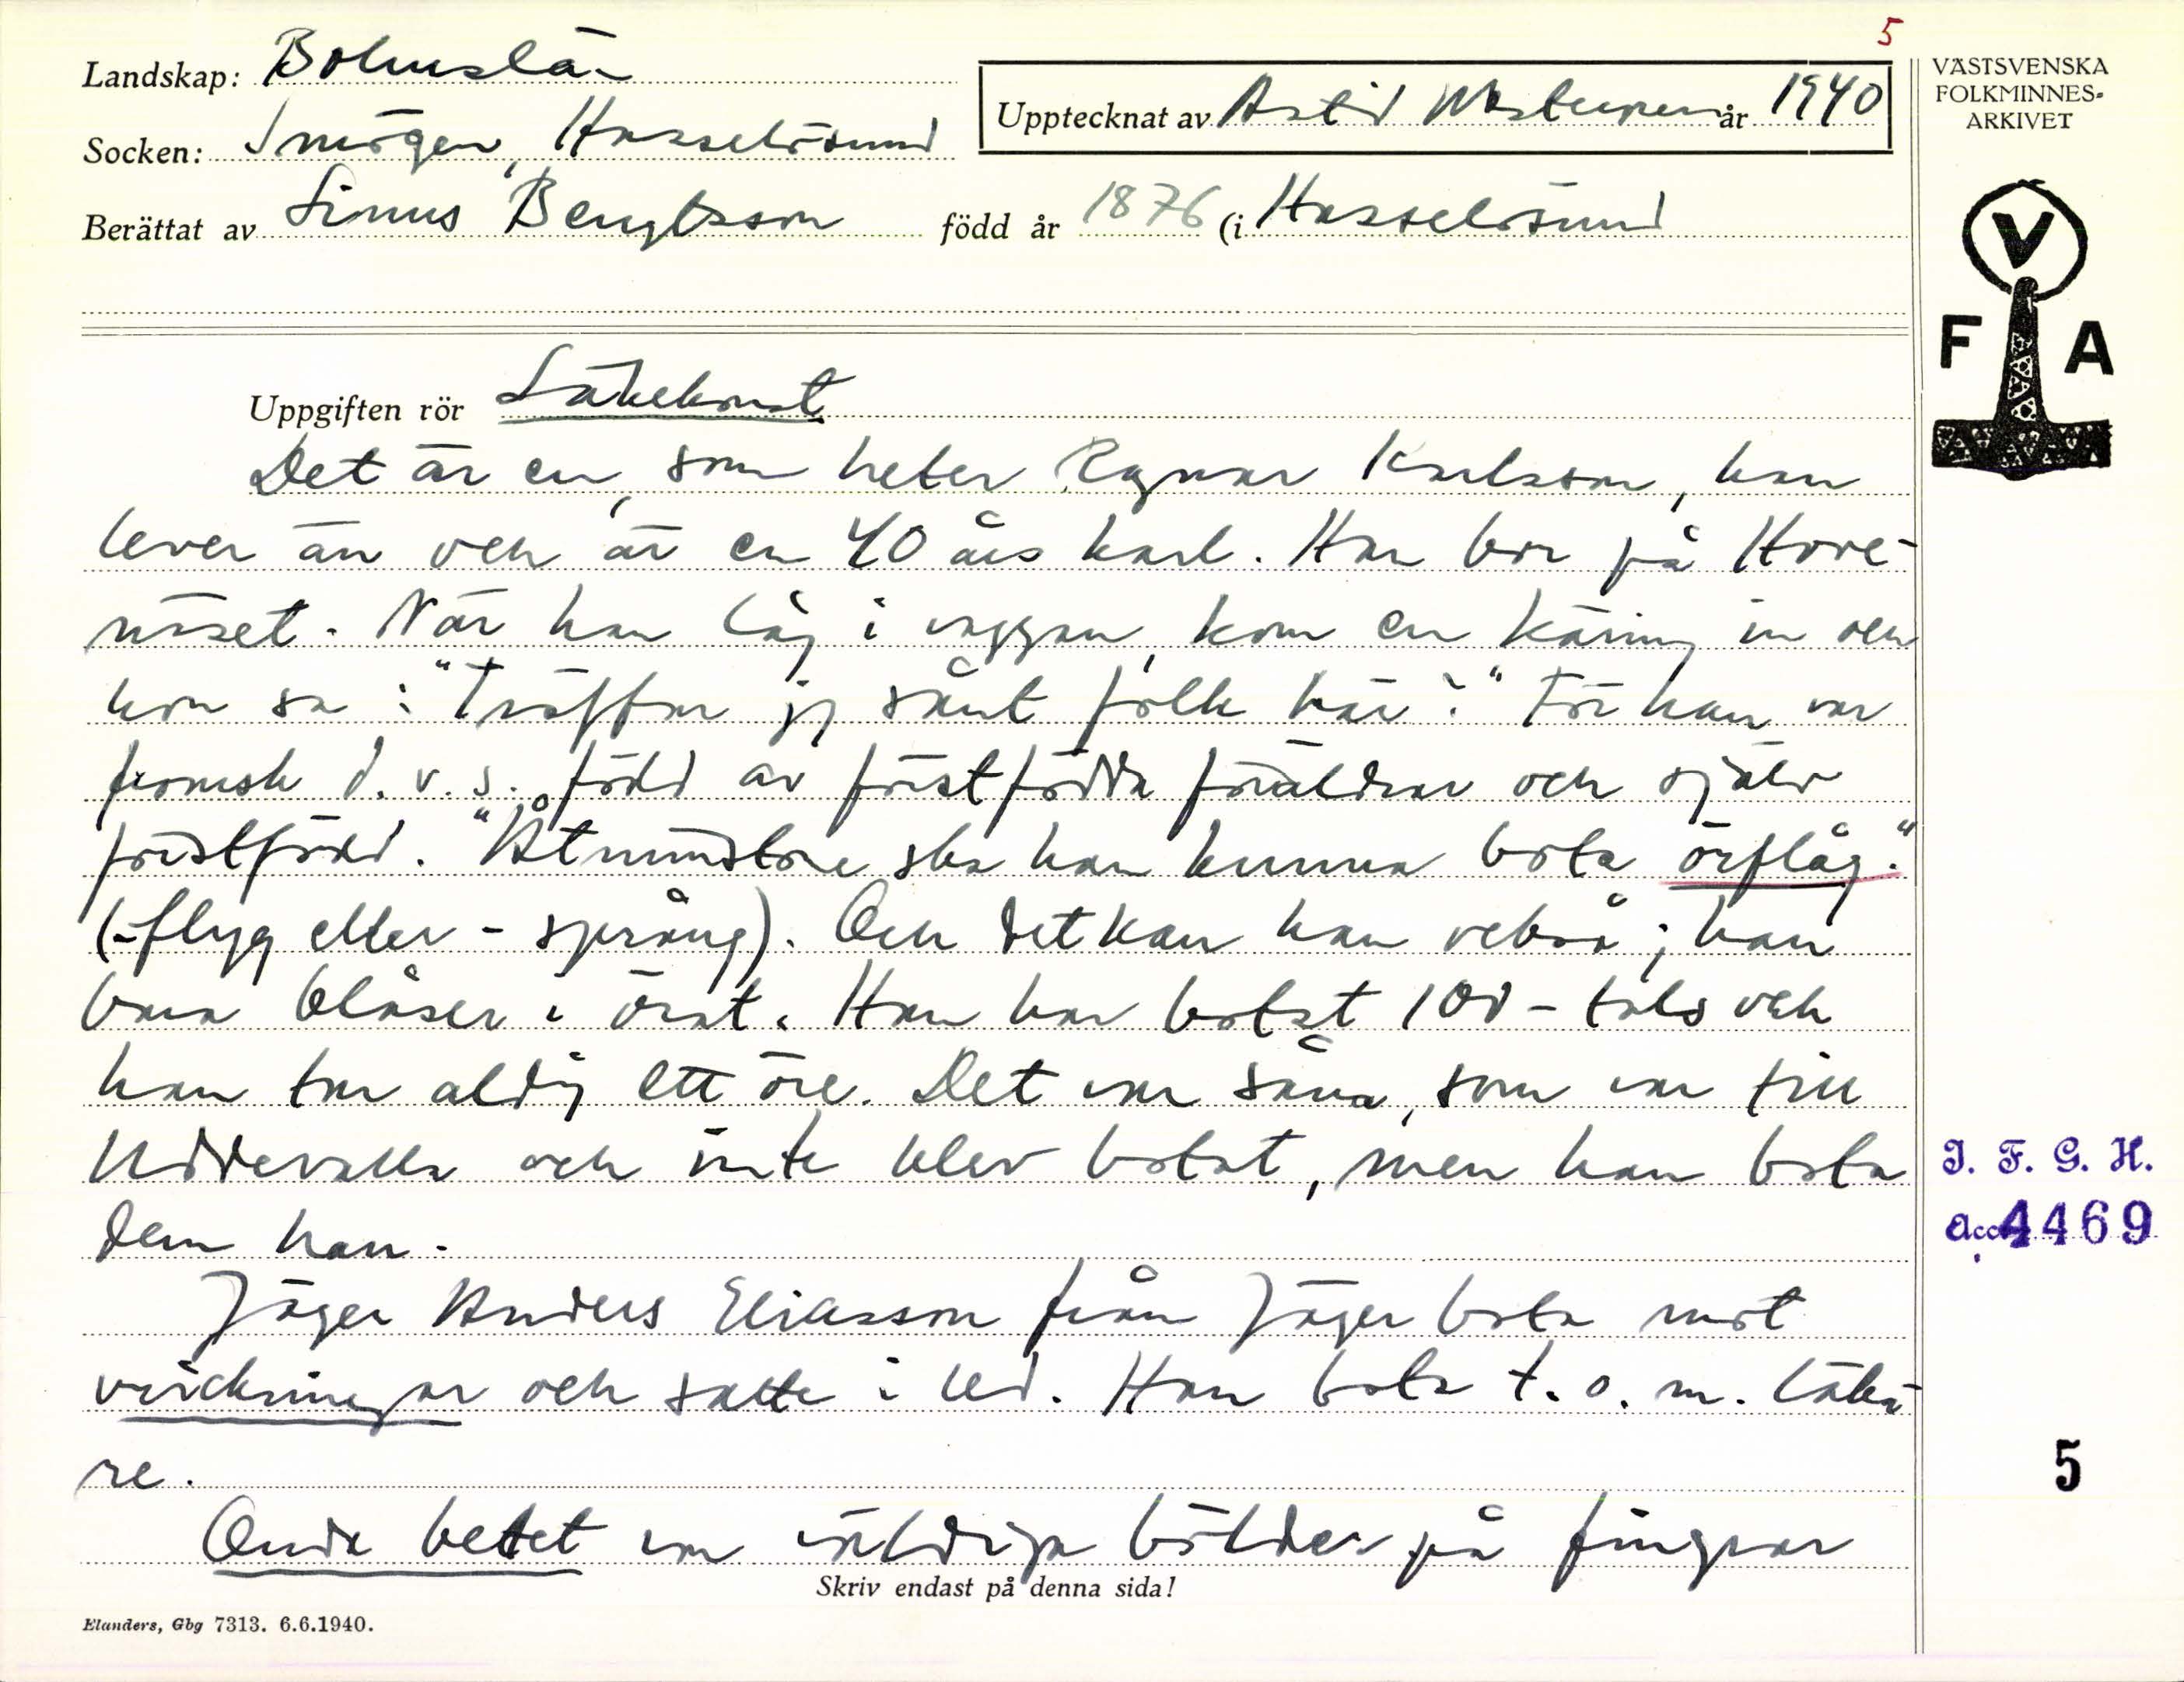 5
Landskap: Bohuslän
Upptecknat av Astrid år 1940
Socken: Smögen, Hasselösund
Berättat av Linus Bengtsson född år 1876 (i Hasselösund
VÄSTSVENSKA
FOLKMINNES-
ARKIVET
V
F A
Uppgiften rör Läkekonst
Det är en, som heter Ragnar Karlsson, han
lever än och är en 40 års karl. Han bor på Hove-
näset. När han låg i vaggan, kom en käring in och
hon sa: "Träffar jg sånt folk här?" För han var
fromsk d.v.s. född av förstfödda föräldrar och själv
förstfödd. "Åtminstone ska han kunna bota örflåg."
(-flyg eller - språng). Och det kan han också; han
bara blåser i örat. Han har botat 100-tals och
han tar aldrig ett öre. Det var såna, som var till
Uddevalla och inte blev botat, men han bota
dem han.
Jäger Anders Eliasson från Jäger bota mot
vrickningar och satte i led. Han bota t.o.m. läka-
re.
Onda betet var väldiga bölder på fingrar
Skriv endast på denna sida!
Elanders, Gbg 7313. 6.6.1940.
I. F. G. H.
Acc. 4469
5